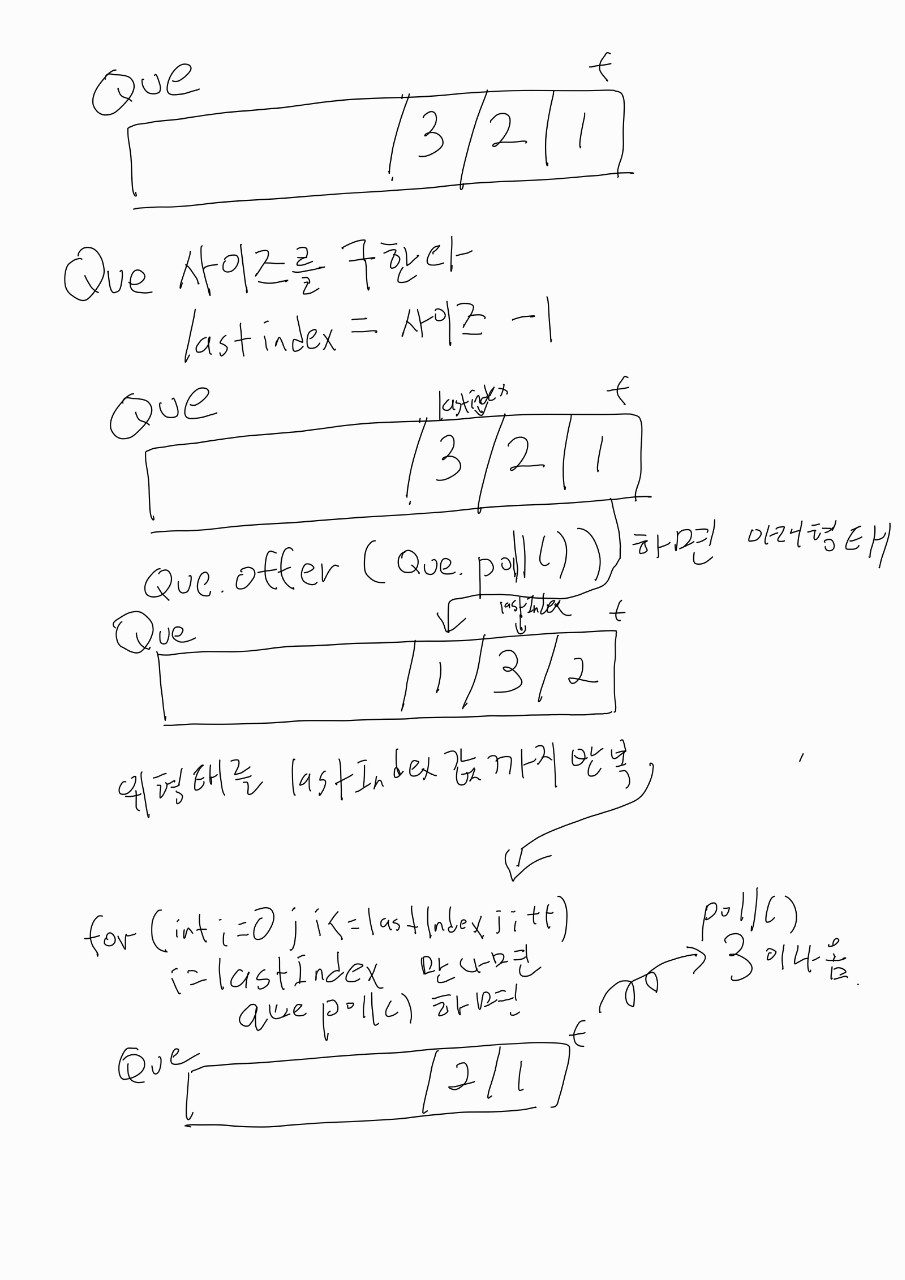 Que
f
3 2 1
Que 사이즈를 구한다
lastindex = 사이즈 -1
Que
lastindex
f
3 2 1
Que.offer (Que.poll()) 하면 아래형태
Que
lastIndex
f
1 3 2
위형태를 lastIndex값까지 반복
for (int i=0 ; i<=lastIndex ; i++)
i=lastIndex 만나면
que poll() 하면
poll()
3이나옴.
Que
f
2 1